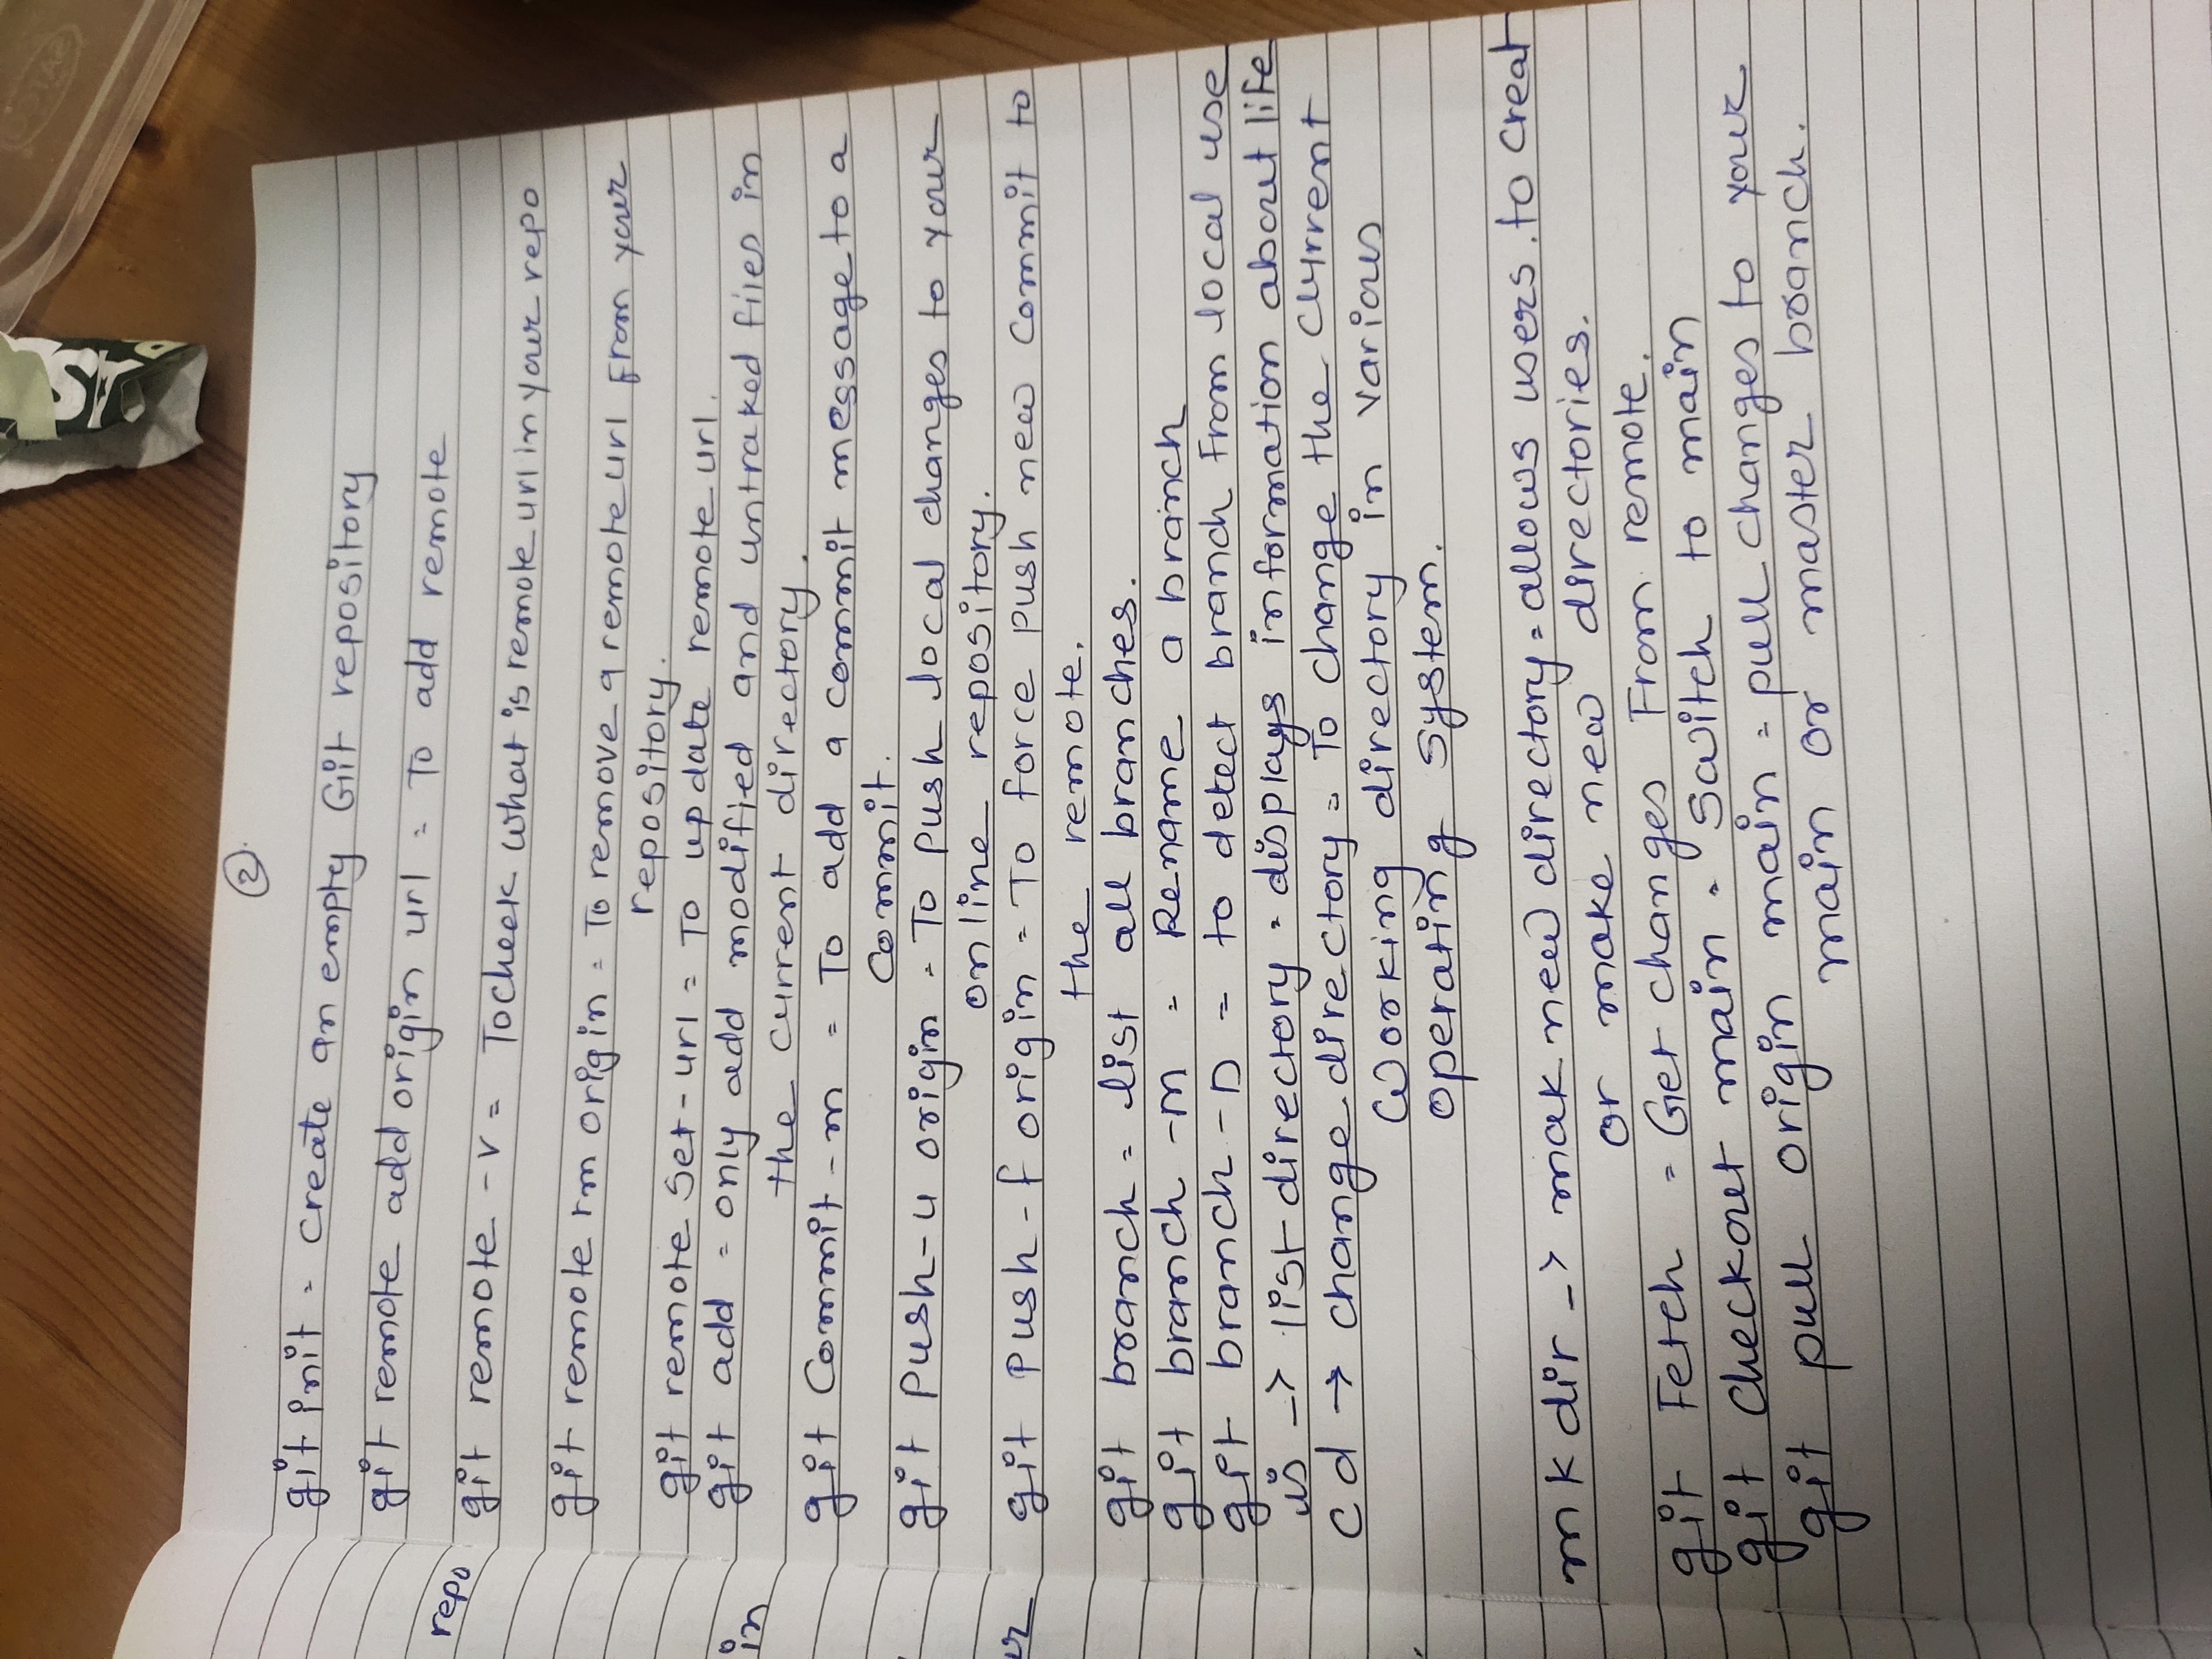 ②.
git init = create an empty Git repository
git remote add origin url = To add remote
repo
git remote -v = To cheek what is remote url in your repo
git remote rm origin = To remove a remote url from your
repository.
git remote set-url = To update remote url.
git add = only add modified and untraked files in
in
the current directory.
git Commit -m = To add a commit message to a
Commit.
git push -u origin = To push local changes to your
online repository.
git push -f origin = To force push new Commit to
the remote.
git branch = list all branches.
git branch -m = Rename a branch
git branch -D = to detect branch from local use
ls -> list directory = displays information about life
cd → change directory = To change the current
Working directory in various
operating system.
mkdir -> mak new directory = allows users. to creat
or make new directories.
git Fetch = Get changes From remote.
git checkout main = Switch to main
git pull origin main = pull changes to your
main or master branch.